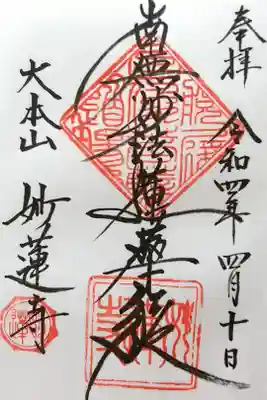 奉拝
令和四年四月十日
南無妙法蓮華経
大本山
妙蓮寺